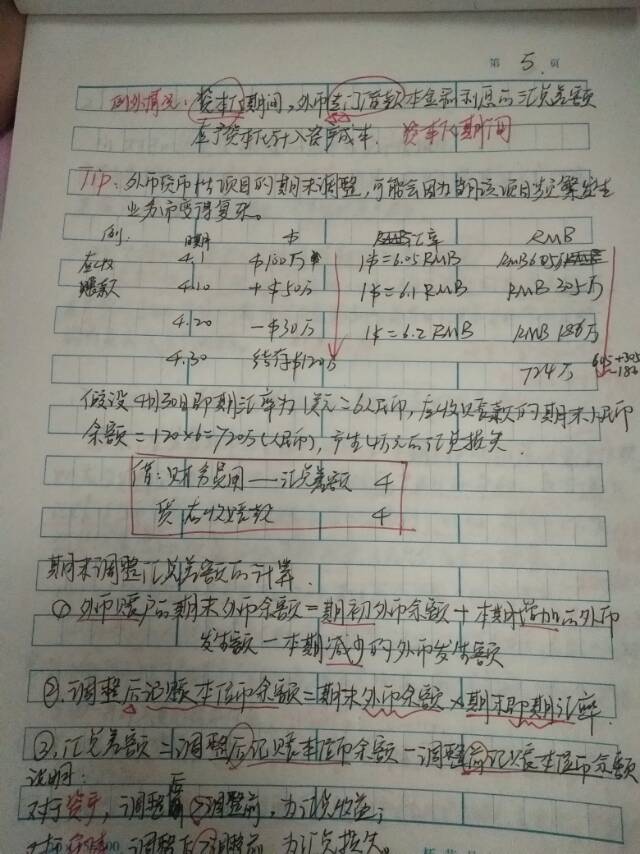 第 5 页
例外情况：资本化期间，外币专门借款本金和利息的汇兑差额
应予资本化，计入资产成本． 资本化期间
Tip：外币货币性项目的期末调整，可能会因为当月该项目频繁发生
业务而变得复杂。
例： 日期 $ 汇率 RMB
应收 4.1 $100万 1$=6.05RMB RMB605万
账款 4.10 +$50万 1$=6.1RMB RMB 305万
4.20 -$30万 1$=6.2RMB RMB 186万
4.30 结存$120万 724万 605+305-186
假设4月30日即期汇率为1美元=6人民币，应收账款的期末人民币
余额=120×6=720万(人民币)，产生4万元的汇兑损失．
借：财务费用——汇兑差额 4
贷：应收账款 4
期末调整汇兑差额的计算．
①外币账户的期末外币余额=期初外币余额+本期增加的外币
发生额-本期减少的外币发生额
②．调整后记账本位币余额=期末外币余额×期末即期汇率．
③．汇兑差额=调整后记账本位币余额-调整前记账本位币余额
说明：
对于资产，调整后>调整前，为汇兑收益；
对于负债，调整后>调整前，为汇兑损失。